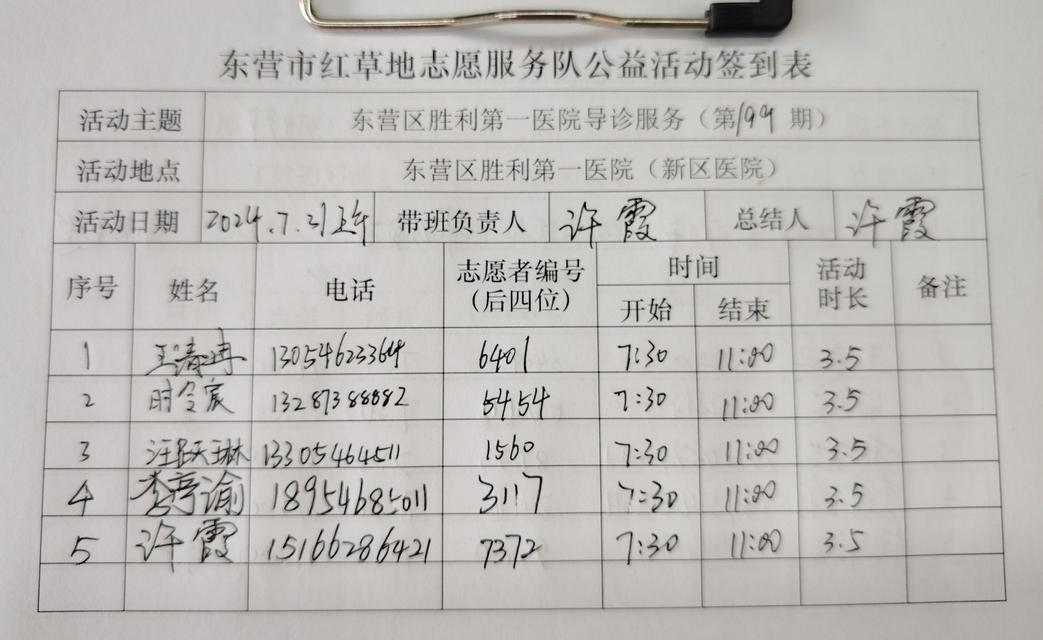 东营市红草地志愿服务队公益活动签到表
活动主题 东营区胜利第一医院导诊服务（第199期）
活动地点 东营区胜利第一医院（新区医院）
活动日期 2024.7.31上午 带班负责人 许霞 总结人 许霞
序号 姓名 电话 志愿者编号（后四位） 时间 开始 结束 活动时长 备注
1 13054623364 6401 7:30 11:00 3.5
2 13287388882 5454 7:30 11:00 3.5
3 汪跃琳 13305464511 1560 7:30 11:00 3.5
4 18954685011 3117 7:30 11:00 3.5
5 许霞 15166286421 7372 7:30 11:00 3.5